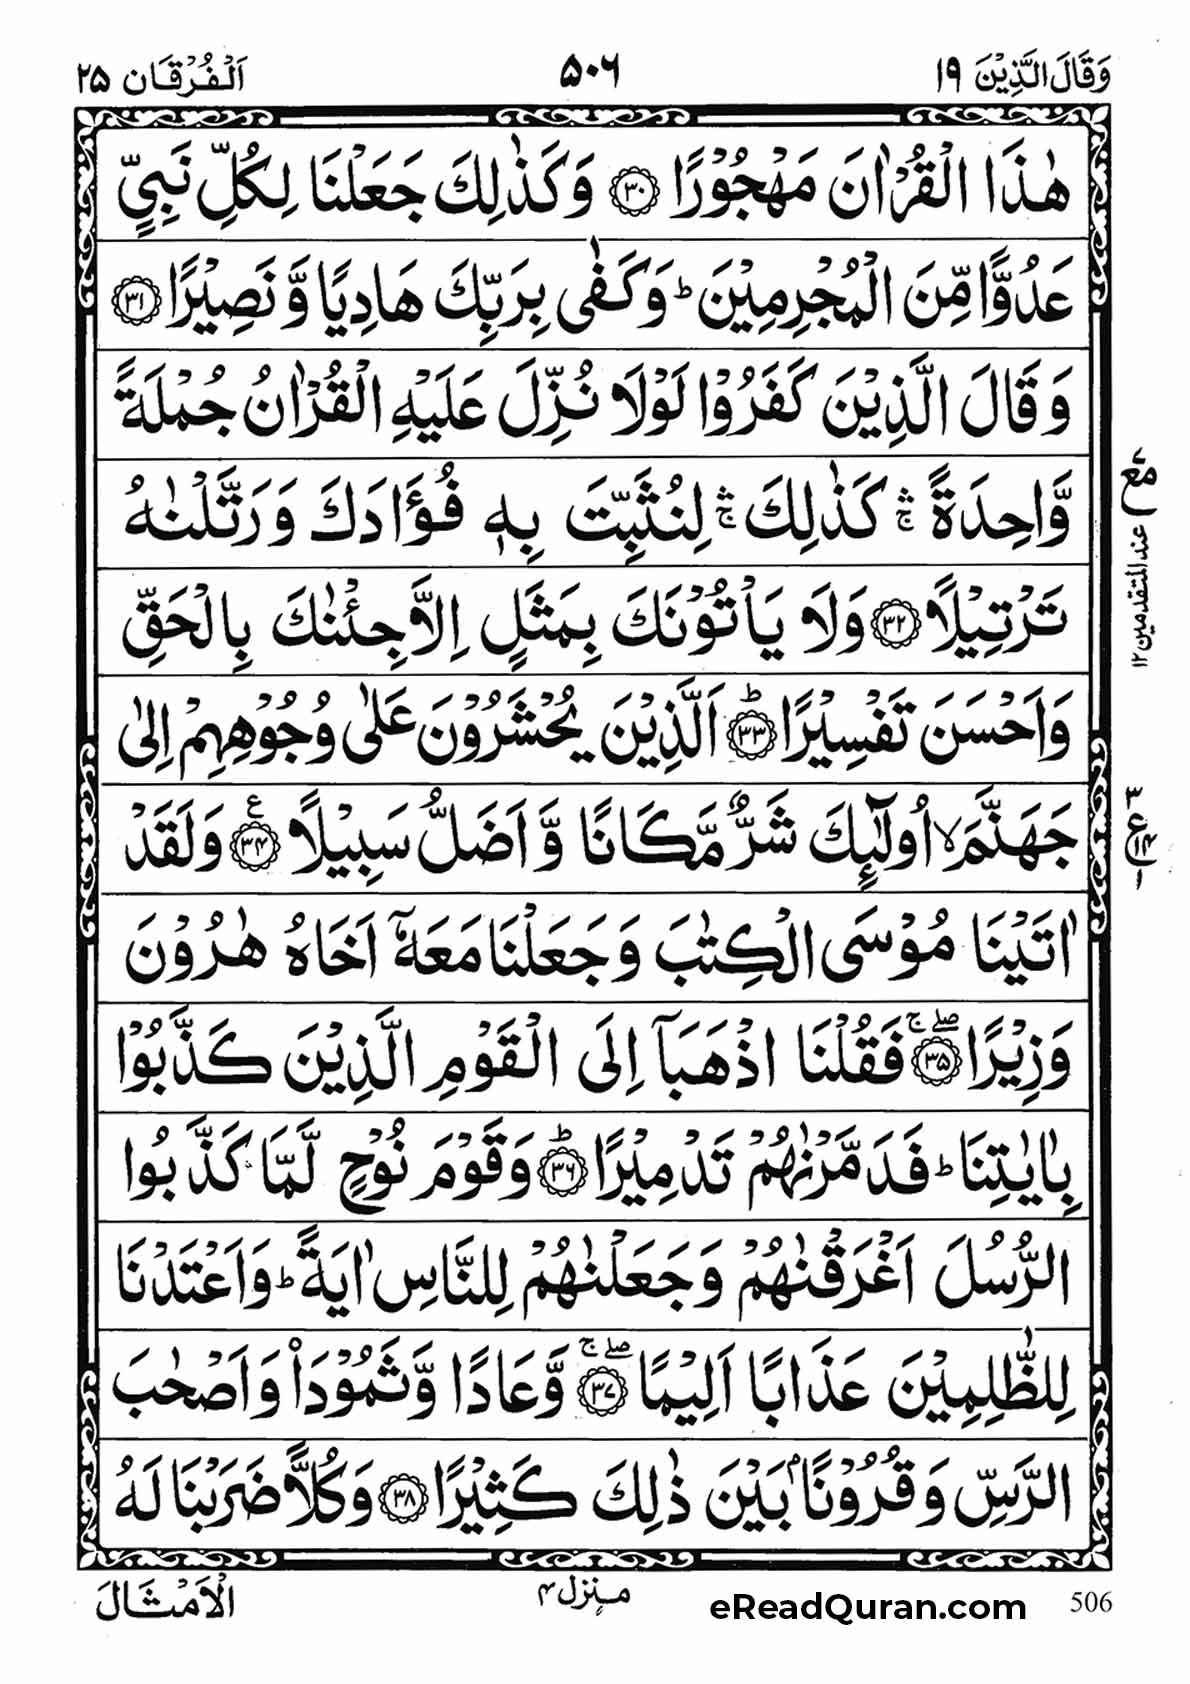 وَقَالَ الَّذِيْنَ ١٩
٥٠٦
اَلْفُرْقَان ٢٥
هٰذَا الْقُرْاٰنَ مَهْجُوْرًا ﴿٣٠﴾ وَكَذٰلِكَ جَعَلْنَا لِكُلِّ نَبِيٍّ
عَدُوًّا مِّنَ الْمُجْرِمِيْنَ ؕ وَكَفٰى بِرَبِّكَ هَادِيًا وَّ نَصِيْرًا ﴿٣١﴾
وَقَالَ الَّذِيْنَ كَفَرُوْا لَوْلَا نُزِّلَ عَلَيْهِ الْقُرْاٰنُ جُمْلَةً
وَّاحِدَةً ۛۚ كَذٰلِكَ ۛۚ لِنُثَبِّتَ بِهٖ فُؤَادَكَ وَرَتَّلْنٰهُ
تَرْتِيْلًا ﴿٣٢﴾ وَلَا يَاْتُوْنَكَ بِمَثَلٍ اِلَّا جِئْنٰكَ بِالْحَقِّ
وَاَحْسَنَ تَفْسِيْرًا ؕ﴿٣٣﴾ اَلَّذِيْنَ يُحْشَرُوْنَ عَلٰى وُجُوْهِهِمْ اِلٰى
جَهَنَّمَ ۙ اُولٰٓئِكَ شَرٌّ مَّكَانًا وَّ اَضَلُّ سَبِيْلًا ﴿٣٤﴾ ع وَلَقَدْ
اٰتَيْنَا مُوْسَى الْكِتٰبَ وَجَعَلْنَا مَعَهٗۤ اَخَاهُ هٰرُوْنَ
وَزِيْرًا ۖۚ﴿٣٥﴾ فَقُلْنَا اذْهَبَاۤ اِلَى الْقَوْمِ الَّذِيْنَ كَذَّبُوْا
بِاٰيٰتِنَا ؕ فَدَمَّرْنٰهُمْ تَدْمِيْرًا ؕ﴿٣٦﴾ وَقَوْمَ نُوْحٍ لَّمَّا كَذَّبُوا
الرُّسُلَ اَغْرَقْنٰهُمْ وَجَعَلْنٰهُمْ لِلنَّاسِ اٰيَةً ؕ وَاَعْتَدْنَا
لِلظّٰلِمِيْنَ عَذَابًا اَلِيْمًا ۖۚ﴿٣٧﴾ وَّعَادًا وَّثَمُوْدَا۟ وَاَصْحٰبَ
الرَّسِّ وَقُرُوْنًۢا بَيْنَ ذٰلِكَ كَثِيْرًا ﴿٣٨﴾ وَكُلًّا ضَرَبْنَا لَهُ
مع
عند المتقدمين ١٢
ع
الْاَمْثَالَ
منزل ٤
eReadQuran.com
506